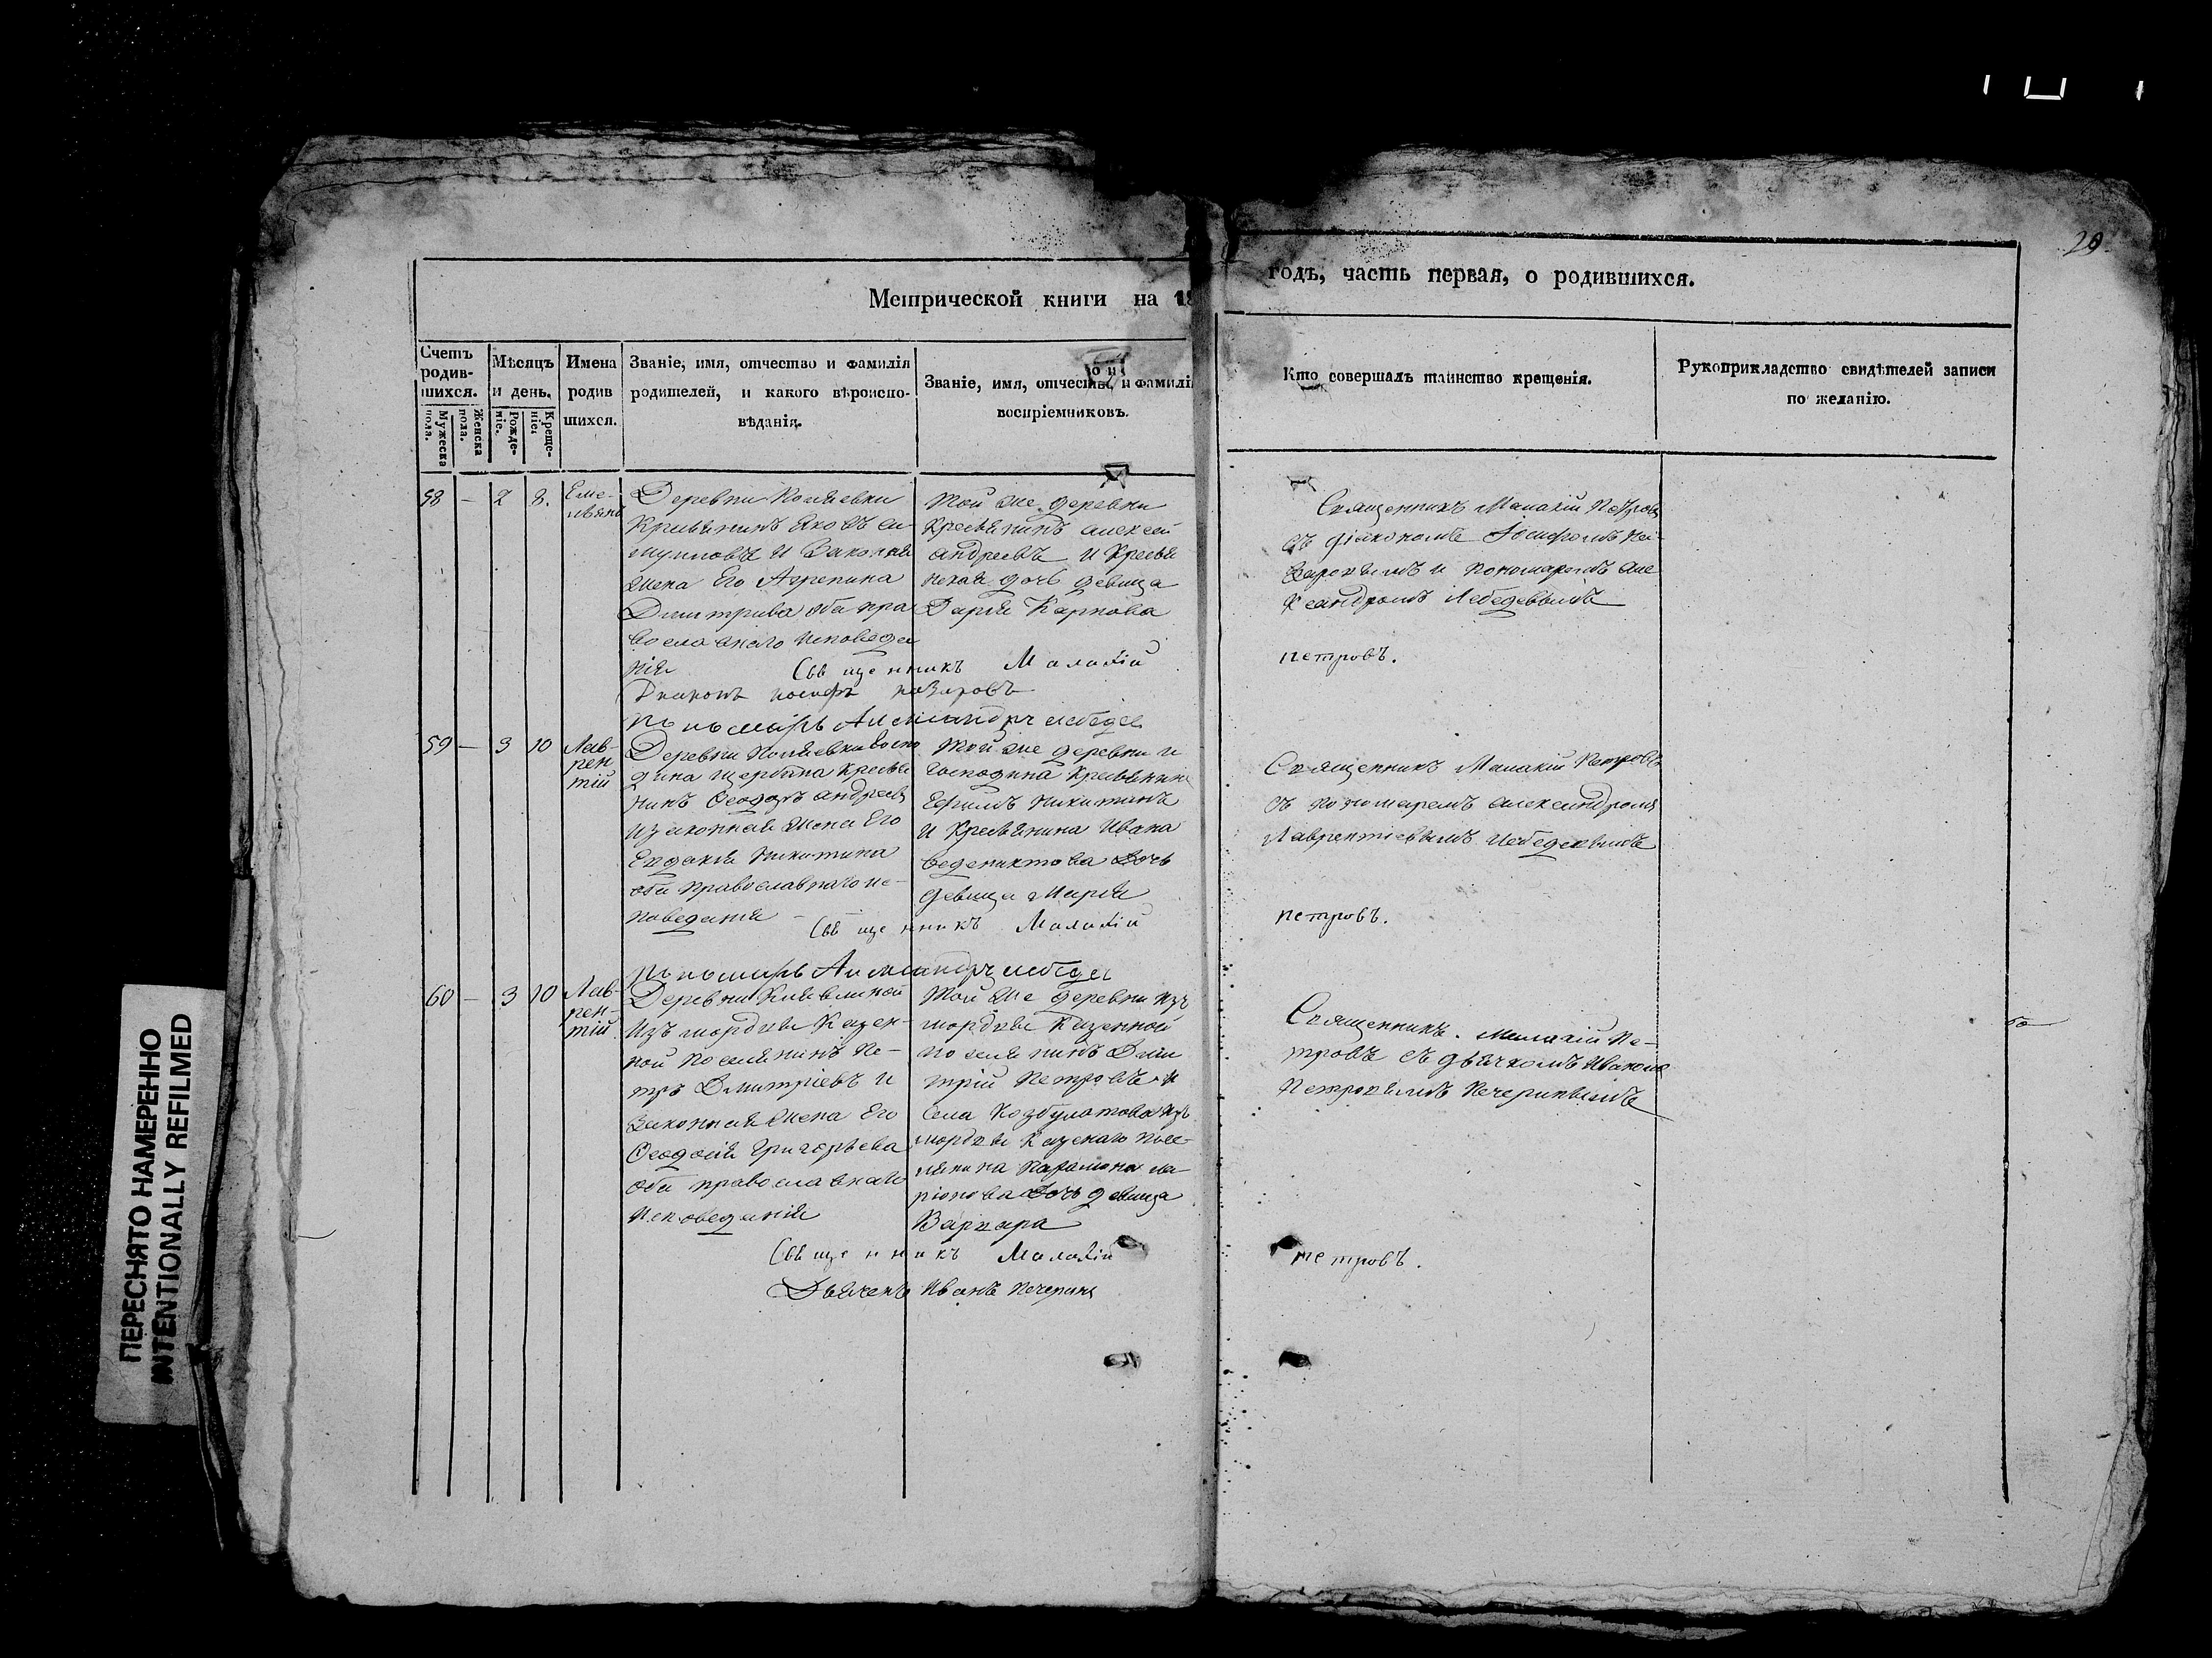 20
Метрической книги на 18
годъ, часть первая, о родившихся.
Счетъ родив-шихся.
Мужеска пола.
Женска пола.
Мѣсяцъ и день.
Рожде-ніе.
Креще-ніе.
Имена родив шихся.
Званіе, имя, отчество и фамилія
родителей, и какого вѣроиспо-
вѣданія.
Званіе, имя, отчество, и фамилія
воспріемниковъ.
Кто совершалъ таинство крещенія.
Рукоприкладство свидѣтелей записи
по желанію.
58 – 2 8.
Еме-
льянъ
Деревни
Крестьянинъ Яковъ
и Законная
жена Его Агрепина
Димтрива оба пра
вославнаго исповеда
нія
Той же деревни
крестьянинъ алексей
андреевъ и крестья
ская дочь девица
Дарья Карпова
Священникъ Малахій Петровъ
съ діакономъ Іосифомъ На-
заровымъ и пономаремъ але
ксандромъ Лебедевымъ
Свещенникъ Малахій
петровъ.
Диаконъ иосифъ назаровъ
пономарь Александръ лебедев
59 – 3 10
Лав-
рен
тій
Деревни госпо
дина Щербина крестья
нинъ Феодоръ андреевъ
изаконная жена Его
Евдакия Никитина
оба православнаго ис-
поведания
Той же деревни и
господина крестьянинъ
Ефимъ Никитинъ
и Крестьянина Ивана
ведениктова Дочь
девица Марья
Священникъ Малахий Петровъ
съ пономаремъ александромъ
Лаврентіевымъ Лебедевымъ
Свещенникъ Малахій
петровъ.
пономарь Александръ лебедев
60 – 3 10
Лав-
рен-
тій
Деревни Кляվлиной
изъ мордвы Казен-
ной поселянинъ Пе-
тръ Дмитріевъ и
Законная жена Его
Феодосия Григорьева
оба православнаго
исповедания
Той же деревни изъ
мордвы Казенной
поселянинъ Дми
трій Петровъ и
села Козбулатова изъ
мордвы Казенаго посе-
лянина Парамона ла-
ріонова Дочь девица
Варвара
Священникъ Малахій Пе-
тровъ съ дьячкомъ Иваномъ
Петровымъ Печеринымъ
Свещенникъ Малахій
петровъ.
Дьячекъ Иванъ Печеринъ
ПЕРЕСНЯТО НАМЕРЕННО
INTENTIONALLY REFILMED